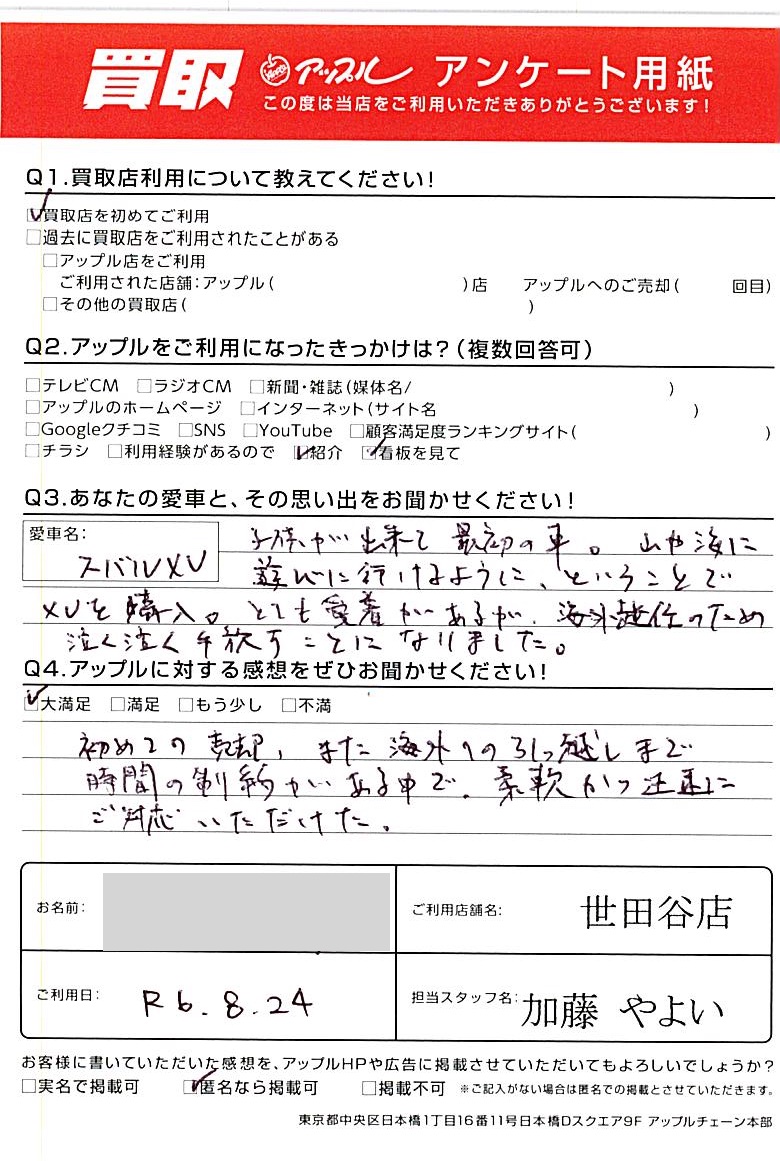 買取 アップル アンケート用紙
この度は当店をご利用いただきありがとうございます!
Q1.買取店利用について教えてください!
☑買取店を初めてご利用
□過去に買取店をご利用されたことがある
□アップル店をご利用
ご利用された店舗:アップル( )店 アップルへのご売却( 回目)
□その他の買取店( )
Q2.アップルをご利用になったきっかけは?(複数回答可)
□テレビCM □ラジオCM □新聞・雑誌(媒体名/ )
□アップルのホームページ □インターネット(サイト名 )
□Googleクチコミ □SNS □YouTube □顧客満足度ランキングサイト( )
□チラシ □利用経験があるので ☑紹介 ☑看板を見て
Q3.あなたの愛車と、その思い出をお聞かせください!
愛車名:
スバルXV
子供が出来て最初の車。山や海に
遊びに行けるように、ということで
XVを購入。とても愛着があるが、海外赴任のため
泣く泣く手放すことになりました。
Q4.アップルに対する感想をぜひお聞かせください!
☑大満足 □満足 □もう少し □不満
初めての売却、また海外への引っ越しまで
時間の制約がある中で、柔軟かつ迅速に
ご対応いただけた。
お名前:
ご利用店舗名: 世田谷店
ご利用日: R6.8.24
担当スタッフ名: 加藤 やよい
お客様に書いていただいた感想を、アップルHPや広告に掲載させていただいてもよろしいでしょうか?
□実名で掲載可 ☑匿名なら掲載可 □掲載不可 ※ご記入がない場合は匿名での掲載とさせていただきます。
東京都中央区日本橋1丁目16番11号日本橋Dスクエア9F アップルチェーン本部